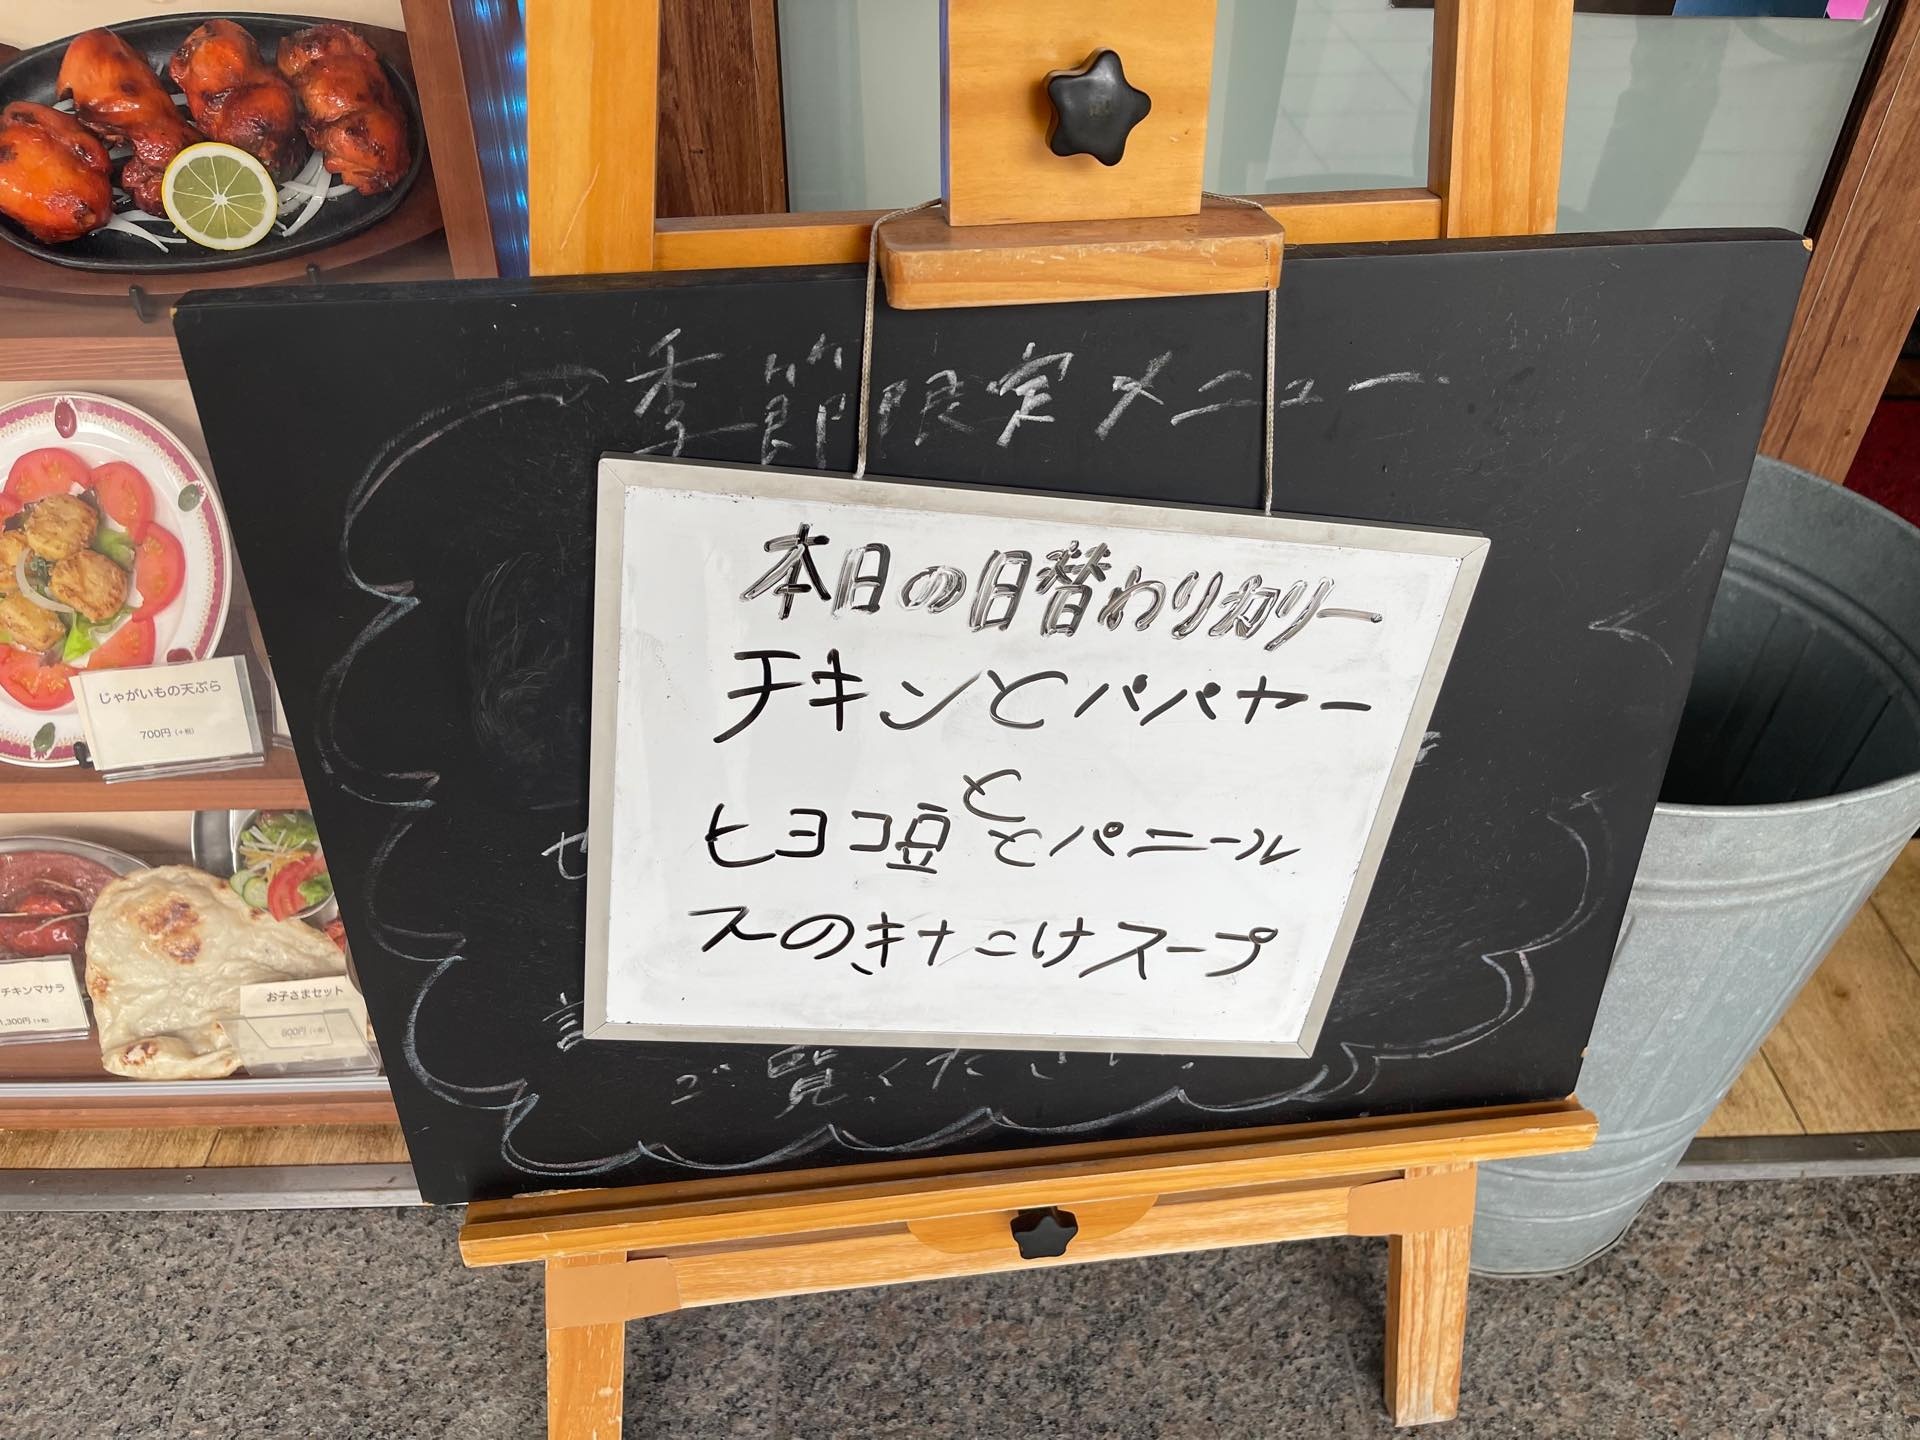 季節限定メニュー
本日の日替わりカリー
チキンとパパヤー
と
ヒヨコ豆とパニール
スのきたこけスープ
ご覧ください。
じゃがいもの天ぷら
700円(+税)
チキンマサラ
1,300円(+税)
お子さまセット
800円(+税)